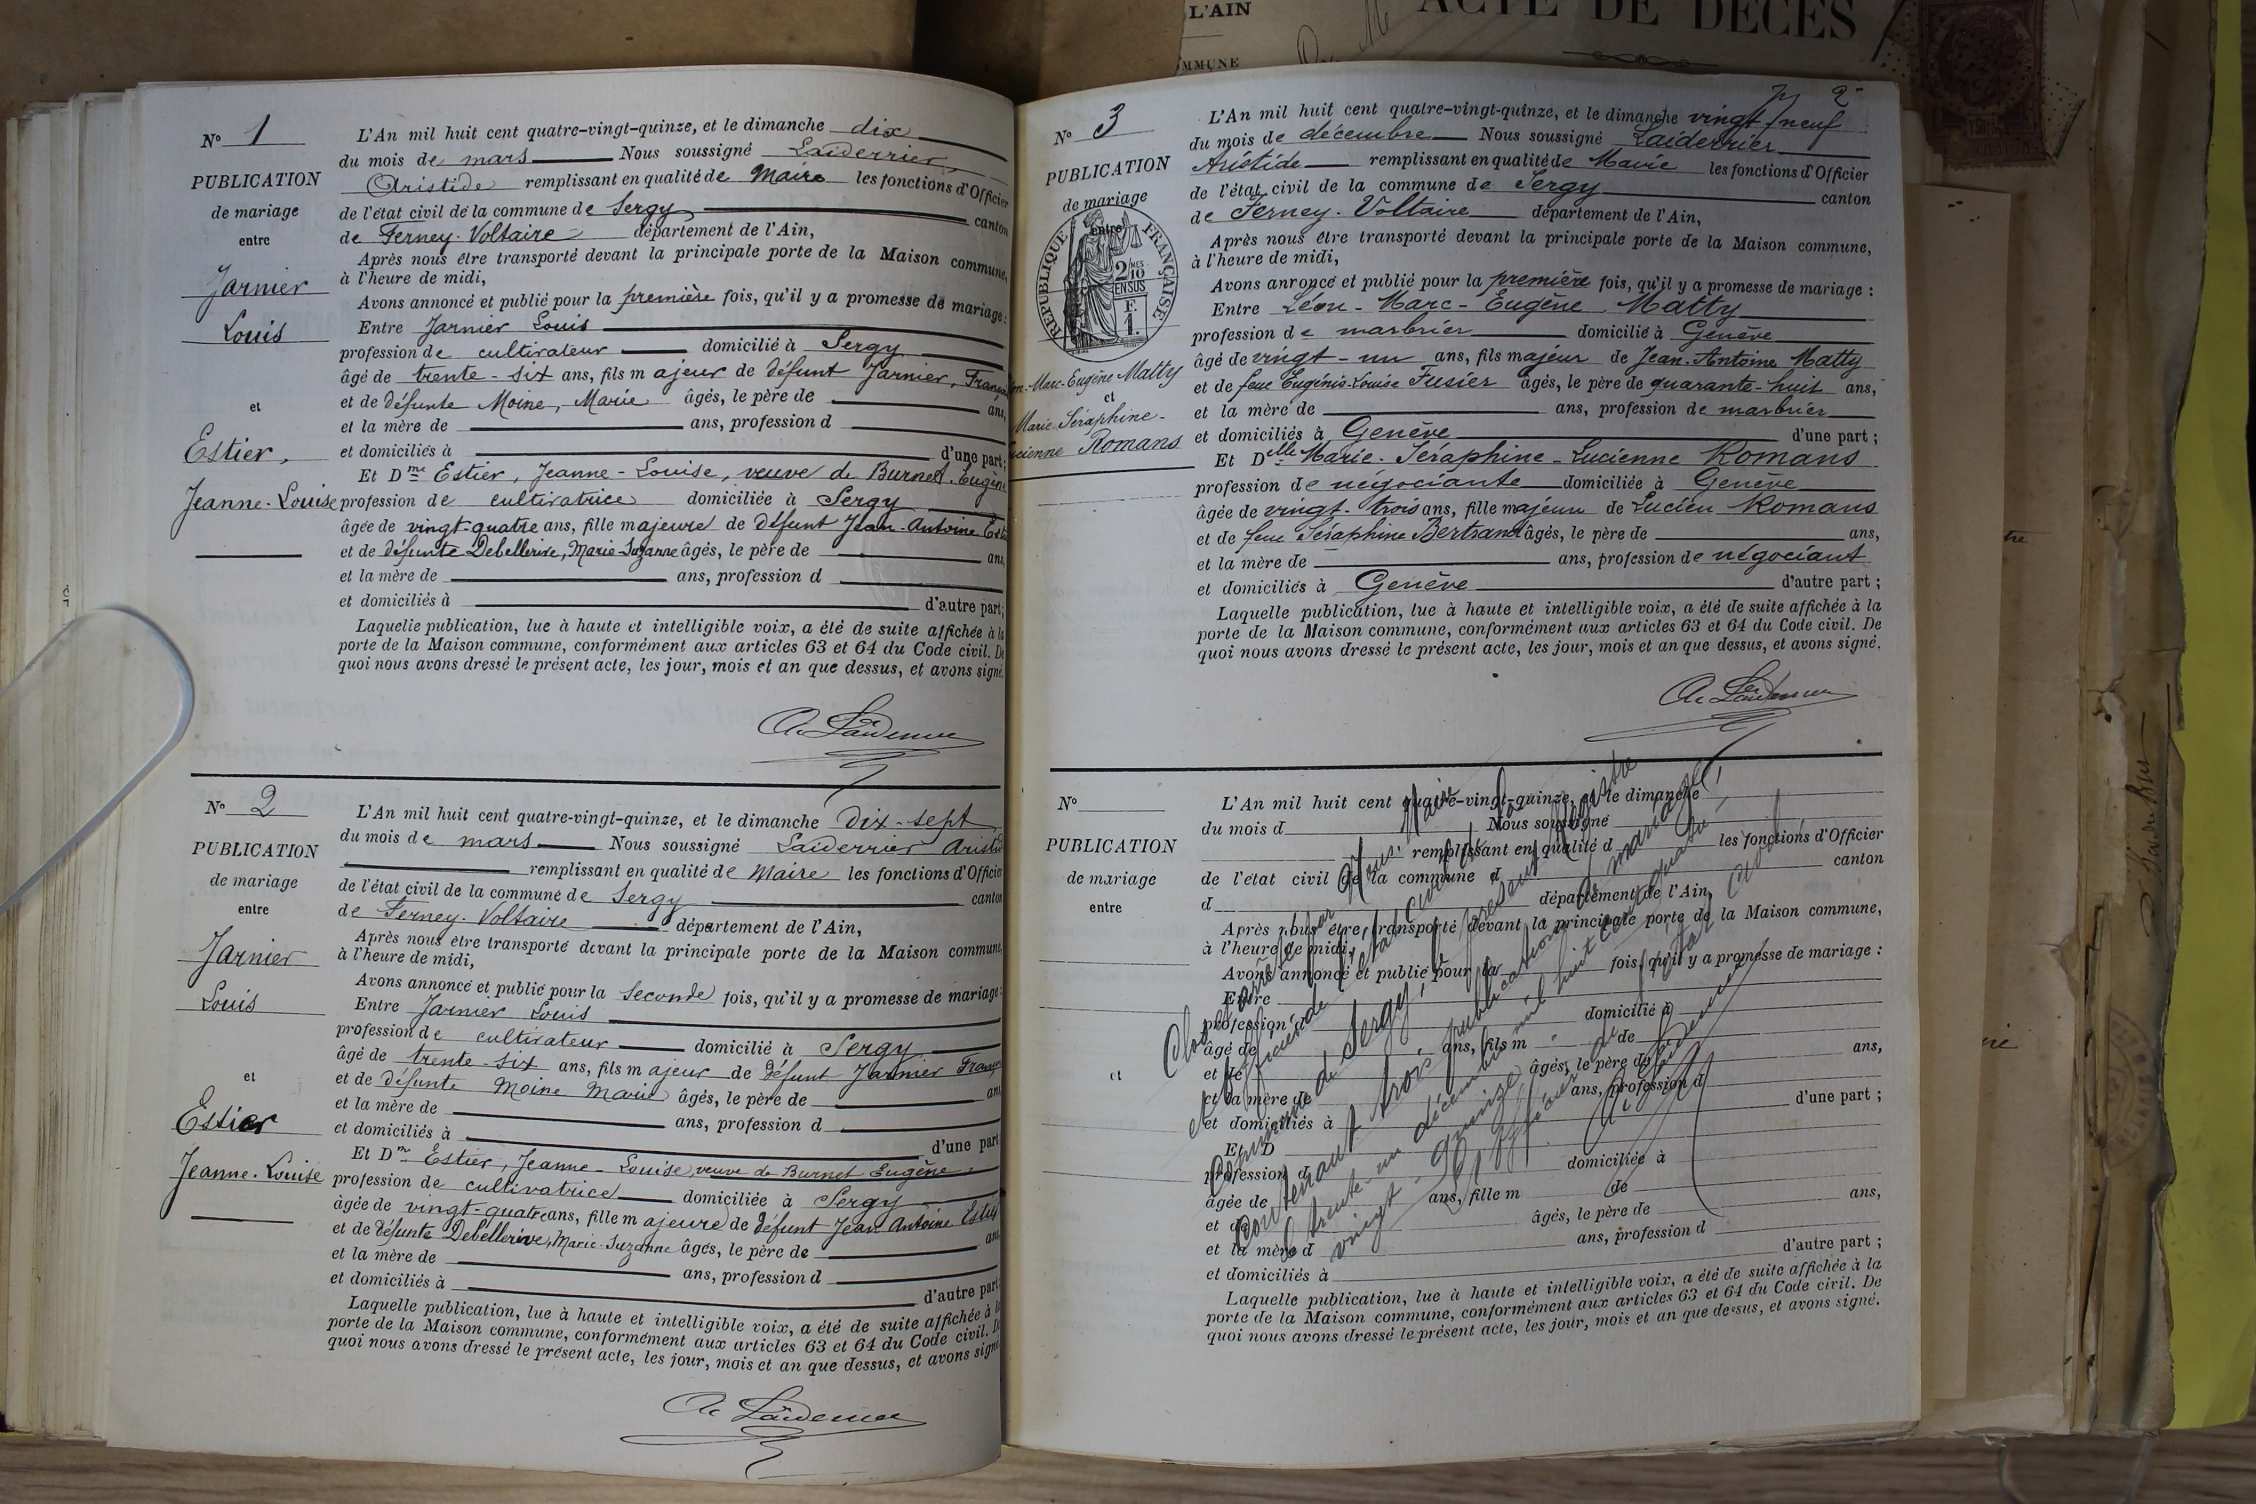 L'AIN
ACTE DE DÉCÈS
MMUNE
N° 1
PUBLICATION
de mariage
entre
Jarnier
Louis
et
Estier,
Jeanne-Louise
L'An mil huit cent quatre-vingt-quinze, et le dimanche dix
du mois de mars Nous soussigné Laiderrier
Aristide remplissant en qualité de Maire les fonctions d'Officier
de l'état civil de la commune de Sergy canton
de Ferney-Voltaire département de l'Ain,
Après nous être transporté devant la principale porte de la Maison commune,
à l'heure de midi,
Avons annoncé et publié pour la première fois, qu'il y a promesse de mariage :
Entre Jarnier Louis
profession de cultivateur domicilié à Sergy
âgé de trente-six ans, fils majeur de défunt Jarnier, Franç
et de défunte Moine, Marie âgés, le père de ans,
et la mère de ans, profession d
et domiciliés à d'une part ;
Et Dme Estier, Jeanne-Louise, veuve de Burnet Eugène
profession de cultivatrice domiciliée à Sergy
âgée de vingt-quatre ans, fille majeure de défunt Jean-Antoine Esti
et de défunte Debellerive, Marie-Suzanne âgés, le père de ans,
et la mère de ans, profession d
et domiciliés à d'autre part ;
Laquelle publication, lue à haute et intelligible voix, a été de suite affichée à la
porte de la Maison commune, conformément aux articles 63 et 64 du Code civil. De
quoi nous avons dressé le présent acte, les jour, mois et an que dessus, et avons signé.
A. Laiderrier
N° 2
PUBLICATION
de mariage
entre
Jarnier
Louis
et
Estier
Jeanne-Louise
L'An mil huit cent quatre-vingt-quinze, et le dimanche dix-sept
du mois de mars Nous soussigné Laiderrier Aristid
remplissant en qualité de Maire les fonctions d'Officier
de l'état civil de la commune de Sergy canton
de Ferney-Voltaire département de l'Ain,
Après nous être transporté devant la principale porte de la Maison commune,
à l'heure de midi,
Avons annoncé et publié pour la seconde fois, qu'il y a promesse de mariage :
Entre Jarnier Louis
profession de cultivateur domicilié à Sergy
âgé de trente-six ans, fils majeur de défunt Jarnier Franç
et de défunte Moine Marie âgés, le père de ans
et la mère de ans, profession d
et domiciliés à d'une part
Et Dme Estier, Jeanne-Louise, veuve de Burnet Eugène
profession de cultivatrice domiciliée à Sergy
âgée de vingt-quatre ans, fille majeure de défunt Jean Antoine Esti
et de défunte Debellerive, Marie-Suzanne âgés, le père de ans
et la mère de ans, profession d
et domiciliés à d'autre part
Laquelle publication, lue à haute et intelligible voix, a été de suite affichée à la
porte de la Maison commune, conformément aux articles 63 et 64 du Code civil. D
quoi nous avons dressé le présent acte, les jour, mois et an que dessus, et avons signé
A. Laiderrier
2
N° 3
PUBLICATION
de mariage
entre
RÉPUBLIQUE FRANÇAISE
2/10 MES
EN SUS
F.
1.
on-Marc-Eugène-Matty
et
Marie-Séraphine-
cienne Romans
L'An mil huit cent quatre-vingt-quinze, et le dimanche vingt-neuf
du mois de décembre Nous soussigné Laiderrier
Aristide remplissant en qualité de Maire les fonctions d'Officier
de l'état civil de la commune de Sergy canton
de Ferney-Voltaire département de l'Ain,
Après nous être transporté devant la principale porte de la Maison commune,
à l'heure de midi,
Avons annoncé et publié pour la première fois, qu'il y a promesse de mariage :
Entre Léon-Marc-Eugène Matty
profession de marbrier domicilié à Genève
âgé de vingt-un ans, fils majeur de Jean-Antoine Matty
et de feue Eugénie-Louise Fusier âgés, le père de quarante-huit ans,
et la mère de ans, profession de marbrier
et domiciliés à Genève d'une part ;
Et Delle Marie-Séraphine-Lucienne Romans
profession de négociante domiciliée à Genève
âgée de vingt-trois ans, fille majeure de Lucien Romans
et de feue Séraphine Bertrand âgés, le père de ans,
et la mère de ans, profession de négociant
et domiciliés à Genève d'autre part ;
Laquelle publication, lue à haute et intelligible voix, a été de suite affichée à la
porte de la Maison commune, conformément aux articles 63 et 64 du Code civil. De
quoi nous avons dressé le présent acte, les jour, mois et an que dessus, et avons signé.
A. Laiderrier
N°
PUBLICATION
de mariage
entre
et
L'An mil huit cent quatre-vingt-quinze, et le dimanche
du mois d Nous soussigné
remplissant en qualité d les fonctions d'Officier
de l'état civil de la commune d canton
d département de l'Ain,
Après nous être transporté devant la principale porte de la Maison commune,
à l'heure de midi,
Avons annoncé et publié pour la fois, qu'il y a promesse de mariage :
Entre
profession d domicilié à
âgé de ans, fils m de
et de âgés, le père de ans,
et la mère de ans, profession d
et domiciliés à d'une part ;
Et D
profession d domiciliée à
âgée de ans, fille m de
et de âgés, le père de ans,
et la mère d ans, profession d
et domiciliés à d'autre part ;
Laquelle publication, lue à haute et intelligible voix, a été de suite affichée à la
porte de la Maison commune, conformément aux articles 63 et 64 du Code civil. De
quoi nous avons dressé le présent acte, les jour, mois et an que dessus, et avons signé.
Clos et arrêté par Nous, Maire
et officier de l'état civil de la
commune de Sergy, le présent registre
contenant trois publications de mariage,
le trente-un décembre mil huit cent quatre-
vingt-quinze
A. Laiderrier